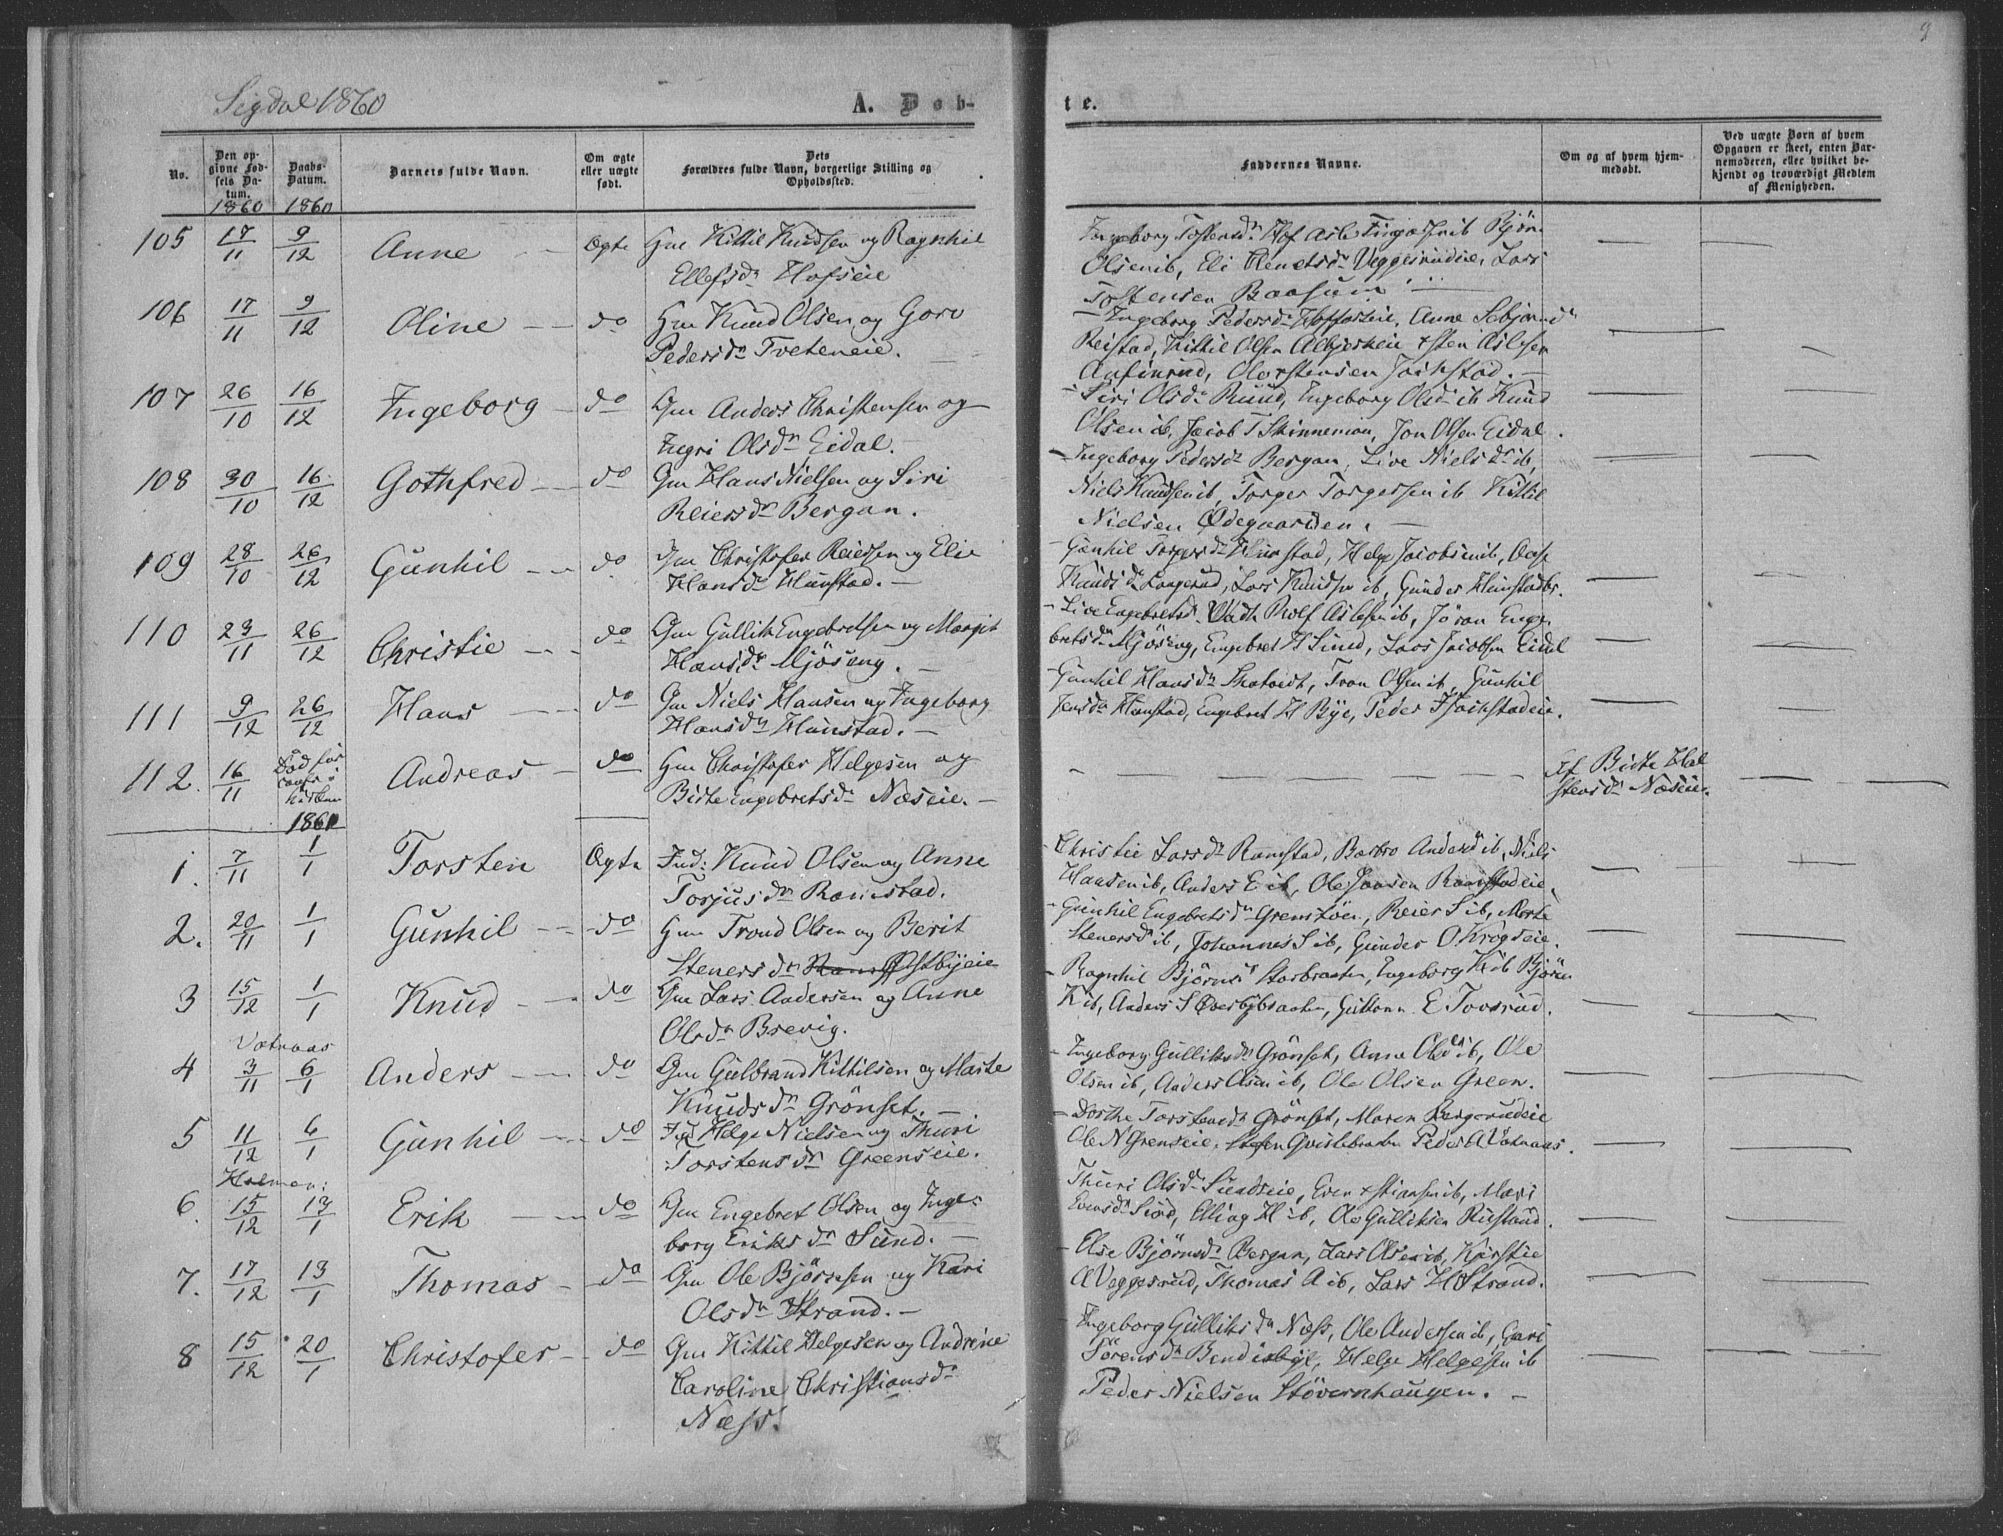 9
Sigdal 1860
A. Døb-
te.
No.
Den opgivne Fødsels Datum.
Daabs-Datum.
Barnets fulde Navn.
Om ægte eller uægte født.
Dets Forældres fulde Navn, borgerlige Stilling og Opholdssted.
Faddernes Navne.
Om og af hvem hjemmedøbt.
Ved uægte Børn af hvem Opgaven er skeet, enten Barnemoderen, eller hvilket bekjendt og troværdigt Medlem af Menigheden.
1860 1860
105 17/11 9/12 Anne Ægte Gm Kittil Knudsen og Ragnhil
Ellefsdr Hofseie
Ingeborg Tostensdr Hof Bjørn
Olsen ib, Eli Veggesrudeie, Lars
Tostensen Baasum
106 17/11 9/12 Oline do Gm Knud Olsen og Goro
Pedersdr Tveteneie.
Ingeborg Pedersdr Anne
Reistad, Kittil Olsen Sten Aslesen
Anfinrud,
107 26/10 16/12 Ingeborg do Gm Anders Christensen og
Ingri Olsdr Eidal.
Siri Olsdr Ruud, Ingeborg Olsd ib Knud
Olsen ib, Jacob T Skinnemon, Jon Olsen Eidal.
108 30/10 16/12 Gothfred do Gm Hans Nielsen og Siri
Reiersdr Bergan.
Ingeborg Pedersdr Bergan, Live Nielsdr ib,
Niels Knudsen ib, Torger Torgersen ib Kittil
Nielsen Ødegaarden.
109 28/10 26/12 Gunhil do Gm Christofer Reiersen og Elie
Hansdr Hunstad.
Gunhil Torgersdr Hunstad, Helge Jacobsen ib, Aase
Knudsdr Lars Knudsen ib, Gunder
110 23/11 26/12 Christie do Gm Gullik Engebretsen og Margit
Hansdr Mjøseng.
Live Engebretsdr Rolf Aslesen ib, Jøran Enge-
bretsdr Mjøseng, Engebret H Sund, Lars Jacobsen Eidal
111 9/12 26/12 Hans do Gm Niels Hansen og Ingeborg
Hansdr Hunstad.
Gunhil Hansdr Skatvedt, Tron Olsen ib, Gunhil
Jensdr Hunstad, Engebret H Bye, Peder
112. 16/11 Død før i Kirken Andreas do Gm Christofer Helgesen og
Birte Engebretsdr Næseie.
Af Birte Hal
stensdr Næseie.
1861
1. 7/11 1/1 Torsten Ægte Ind: Knud Olsen og Anne
Torjusdr Ramstad.
Christie Larsdr Ramstad, Barbro Andersd ib, Niels
Hansen ib, Anders E ib, Ole Ramstadeie.
2. 20/11 1/1 Gunhil do Gm Trond Olsen og Berit
Stenersdr Østbyeie
Gunhil Engebretsdr Reier S ib, Marte
Stenersd ib, Johannes S ib, Gunder O Krogseie.
3 15/12 1/1 Knud do Gm Lars Andersen og Anne
Olsdr Brevig.
Ragnhil Bjørnsd Storbraaten, Ingeborg K ib Bjørn
K ib, Anders S Øverbybraaten, Guttorm E Tovsrud.
Vatnaas
4 3/11 6/1 Anders do Gm Gulbrand Kittilsen og Marte
Knudsdr Grønset.
Ingeborg Gulliksdr Grønset, Anne Olsd ib, Ole
Olsen ib, Anders Olsen ib, Ole Olsen Green.
5 11/12 6/1 Gunhil do Helge Nielsen og Thuri
Torstensdr Greenseie.
Dorthe Torstensdr Grønset, Maren Bergerudeie
Ole N Grenseie, Peder A Vatnaas.
Holmen:
6. 15/12 13/1 Erik do Gm Engebret Olsen og Inge-
borg Eriksdr Sund.
Thuri Olsdr Sundseie, Even ib, Mari
Evensdr Elling H ib, Ole Gulliksen Rustand.
7. 17/12 13/1 Thomas do Gm Ole Bjørnsen og Kari
Olsdr Strand.
Else Bjørnsdr Bergan, Lars Olsen ib, Kirstie
A Veggesrud, Thomas A ib, Lars H Strand.
8 15/12 20/1 Christofer do Gm Kittil Helgesen og Andrine
Caroline Christiansdr
Næss.
Ingeborg Gulliksdr Næss, Ole Andersen ib, Guri
Sørensdr Helge Helgesen ib
Peder Nielsen Støvernhaugen.